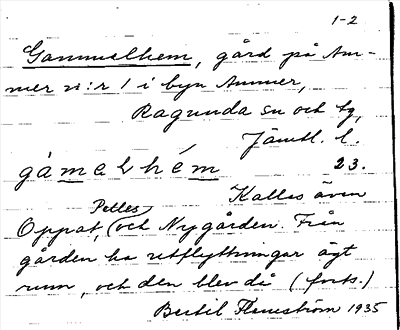 1-2
Gammelhem, gård på Am-
mer n:r 1 i byn Ammer,
Ragunda sn och tg,
Jämtl. l.
gàmelhém 23.
Kallas även
Oppat, Pelles (och Nygården. Från
gården ha utflyttningar ägt
rum, och den blev då (forts.)
Bertil Flemström 1935